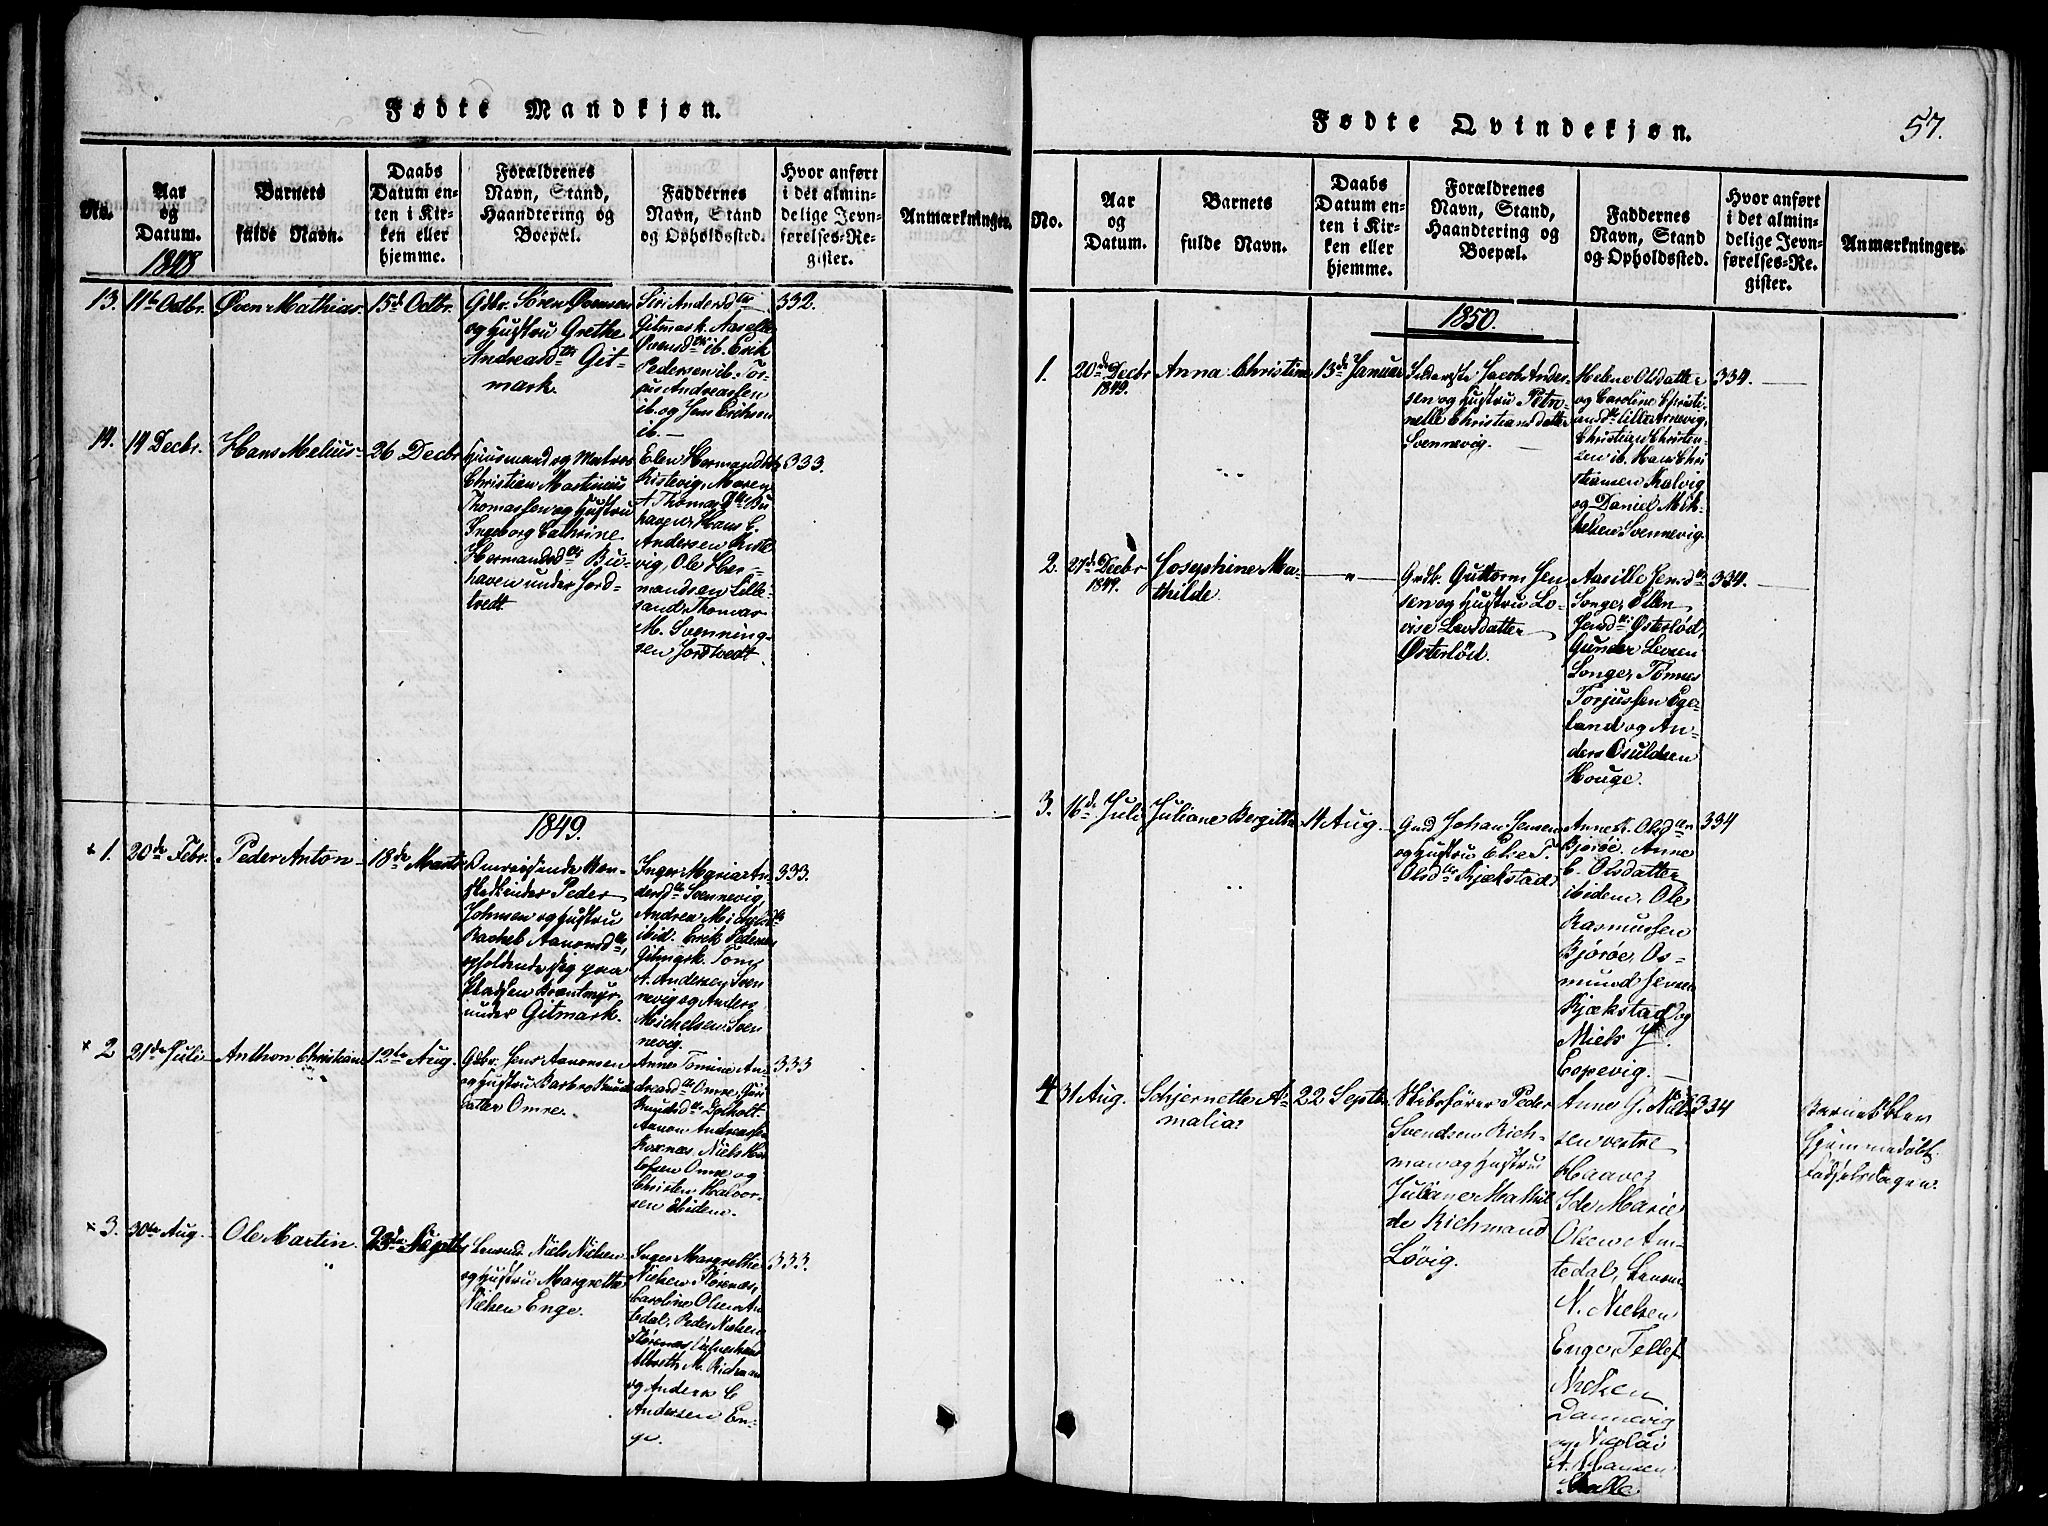 Fødte Mandkjøn.
No.
Aar
og
Datum.
1848
Barnets
fulde Navn.
Daabs
Datum en-
ten i Kir-
ken eller
hjemme.
Forældrenes
Navn, Stand,
Haandtering og
Boepæl.
Faddernes
Navn, Stand
og Opholdssted.
Hvor anført
i det almin-
delige Jevn-
førelses-Re-
gister.
Anmærkninger.
13.
11te Octbr.
Øven Mathias
15de Octbr.
Gdbr. Sören Øvensen
og Hustru Grethe
Andreasdtr Git-
mark.
Siri Andersdtr
Gitmark, Aaselle
Øvensdtr ib. Erik
Pedersen ib. Tor-
jus Andreassen
ib. og Jens Eriksen
ib.
332.
14.
14 Decbr.
Hans Melius
26 Decbr
Huusmand og Matros
Christian Martinius
Thomassen og Hustru
Ingeborg Cathrine
Hermandsdtr Bu-
haven under Jord-
tvedt.
Elen Hermandsdtr
Kistevig, Maren
A Thomasdtr Bu
haven, Hans C.
Andersen Kiste
vig, Ole Her-
mandsen Lille-
sand, Thomas
M. Svenning-
sen Jordtvedt
333.
1849.
+ 1.
20de Febr.
Peder Anton
18de Marts
Omreisende
Peder
Johnsen og Hustru
Rachel Aanensdtr,
opholdende sig paa
Pladsen Brentmyr
under Gitmark.
Inger Maria An
dersdtr Svennevig,
Andrea Michelsdtr
ibid. Erik Pedersen
Gitmark. Tom
A. Andersen Sven
nevig og Anders
Michelsen Sven
nevig.
333.
× 2
31de Juli
Anthon Christian
12te Aug.
Gdbr. Jens Aanonsen
og Hustru Barbro Knuds
datter Omre.
Anne Tomine An
dreasdtr Omre,
Knudsdtr
Aanon Andreassen
Niels
Omre og
Christen Halvor-
sen ibidem.
333
× 3.
30te Aug.
Ole Martin
23de Septbr
Niels Nielsen
og Hustru Margrethe
Nielsen Enge.
Inger Margrethe
Nielsen
Caroline Olsen
Peder Nielsen
Albreth M. Richman
og Anders C
Andersen En-
ge.
333.
Fødte Qvindekjøn.
57.
No.
Aar
og
Datum.
Barnets
fulde Navn.
Daabs
Datum en-
ten i Kir-
ken eller
hjemme.
Forældrenes
Navn, Stand,
Haandtering og
Boepæl.
Faddernes
Navn, Stand
og Opholdssted.
Hvor anført
i det almin-
delige Jevn-
førelses-Re-
gister.
Anmærkninger.
1850.
1.
20de Decbr
1849.
Anna Christine
13de Januar
Jacob Ander-
sen og Hustru Petro-
nelle Christiansdatter
Svennevig.
Helene Olsdatter
og Caroline Christi-
andtr Lille Arnevig,
Christian Christen-
sen ib. Hans Chri
stiansen Kalvig
og Daniel Mik-
kelsen Svennevig.
334.
2.
27de Decbr
1849.
Josephine Ma-
thilde
"
Gdbr. Guttorm Jen
sen og Hustru Lo-
vise Larsdatter
Østerlöid.
Aasille Jensdtr
Songe, Ellen
Jensdtr Østerlöd,
Gunder Larsen
Songe, Tönnes
Torjussen Ege-
land og An-
ders Osuldsen
Houge.
334.
3.
16de Juli
Juliane Bergitte
11 Aug.
Gmd Johan Jensen
og Hustru Else T.
Olsdtr Kjækstad.
Anne K. Olsdtr
Bjorøe. Anne
C. Olsdatter
ibidem. Ole
Rasmussen
Bjoröe, Os-
mund Jensen
Kjækstad og
Niels J.
Eopevig.
334
4
31 Aug.
Schjernette A-
malia
22 Septbr
Skibsförer Peder
Svendsen Rich-
man og Hustru
Juliane Mathil
de Richmand
Lövig.
Anne G. Niel-
sen vestre
Haave,
Ide Marie
Olsen Am-
tedal,
N. Nielsen
Enge, Tellef
Nielsen
Dannevig
og Nicolai
A. Hansen
Skalle
334
Barnet blev
hjemmedøbt
Fødselsdagen.